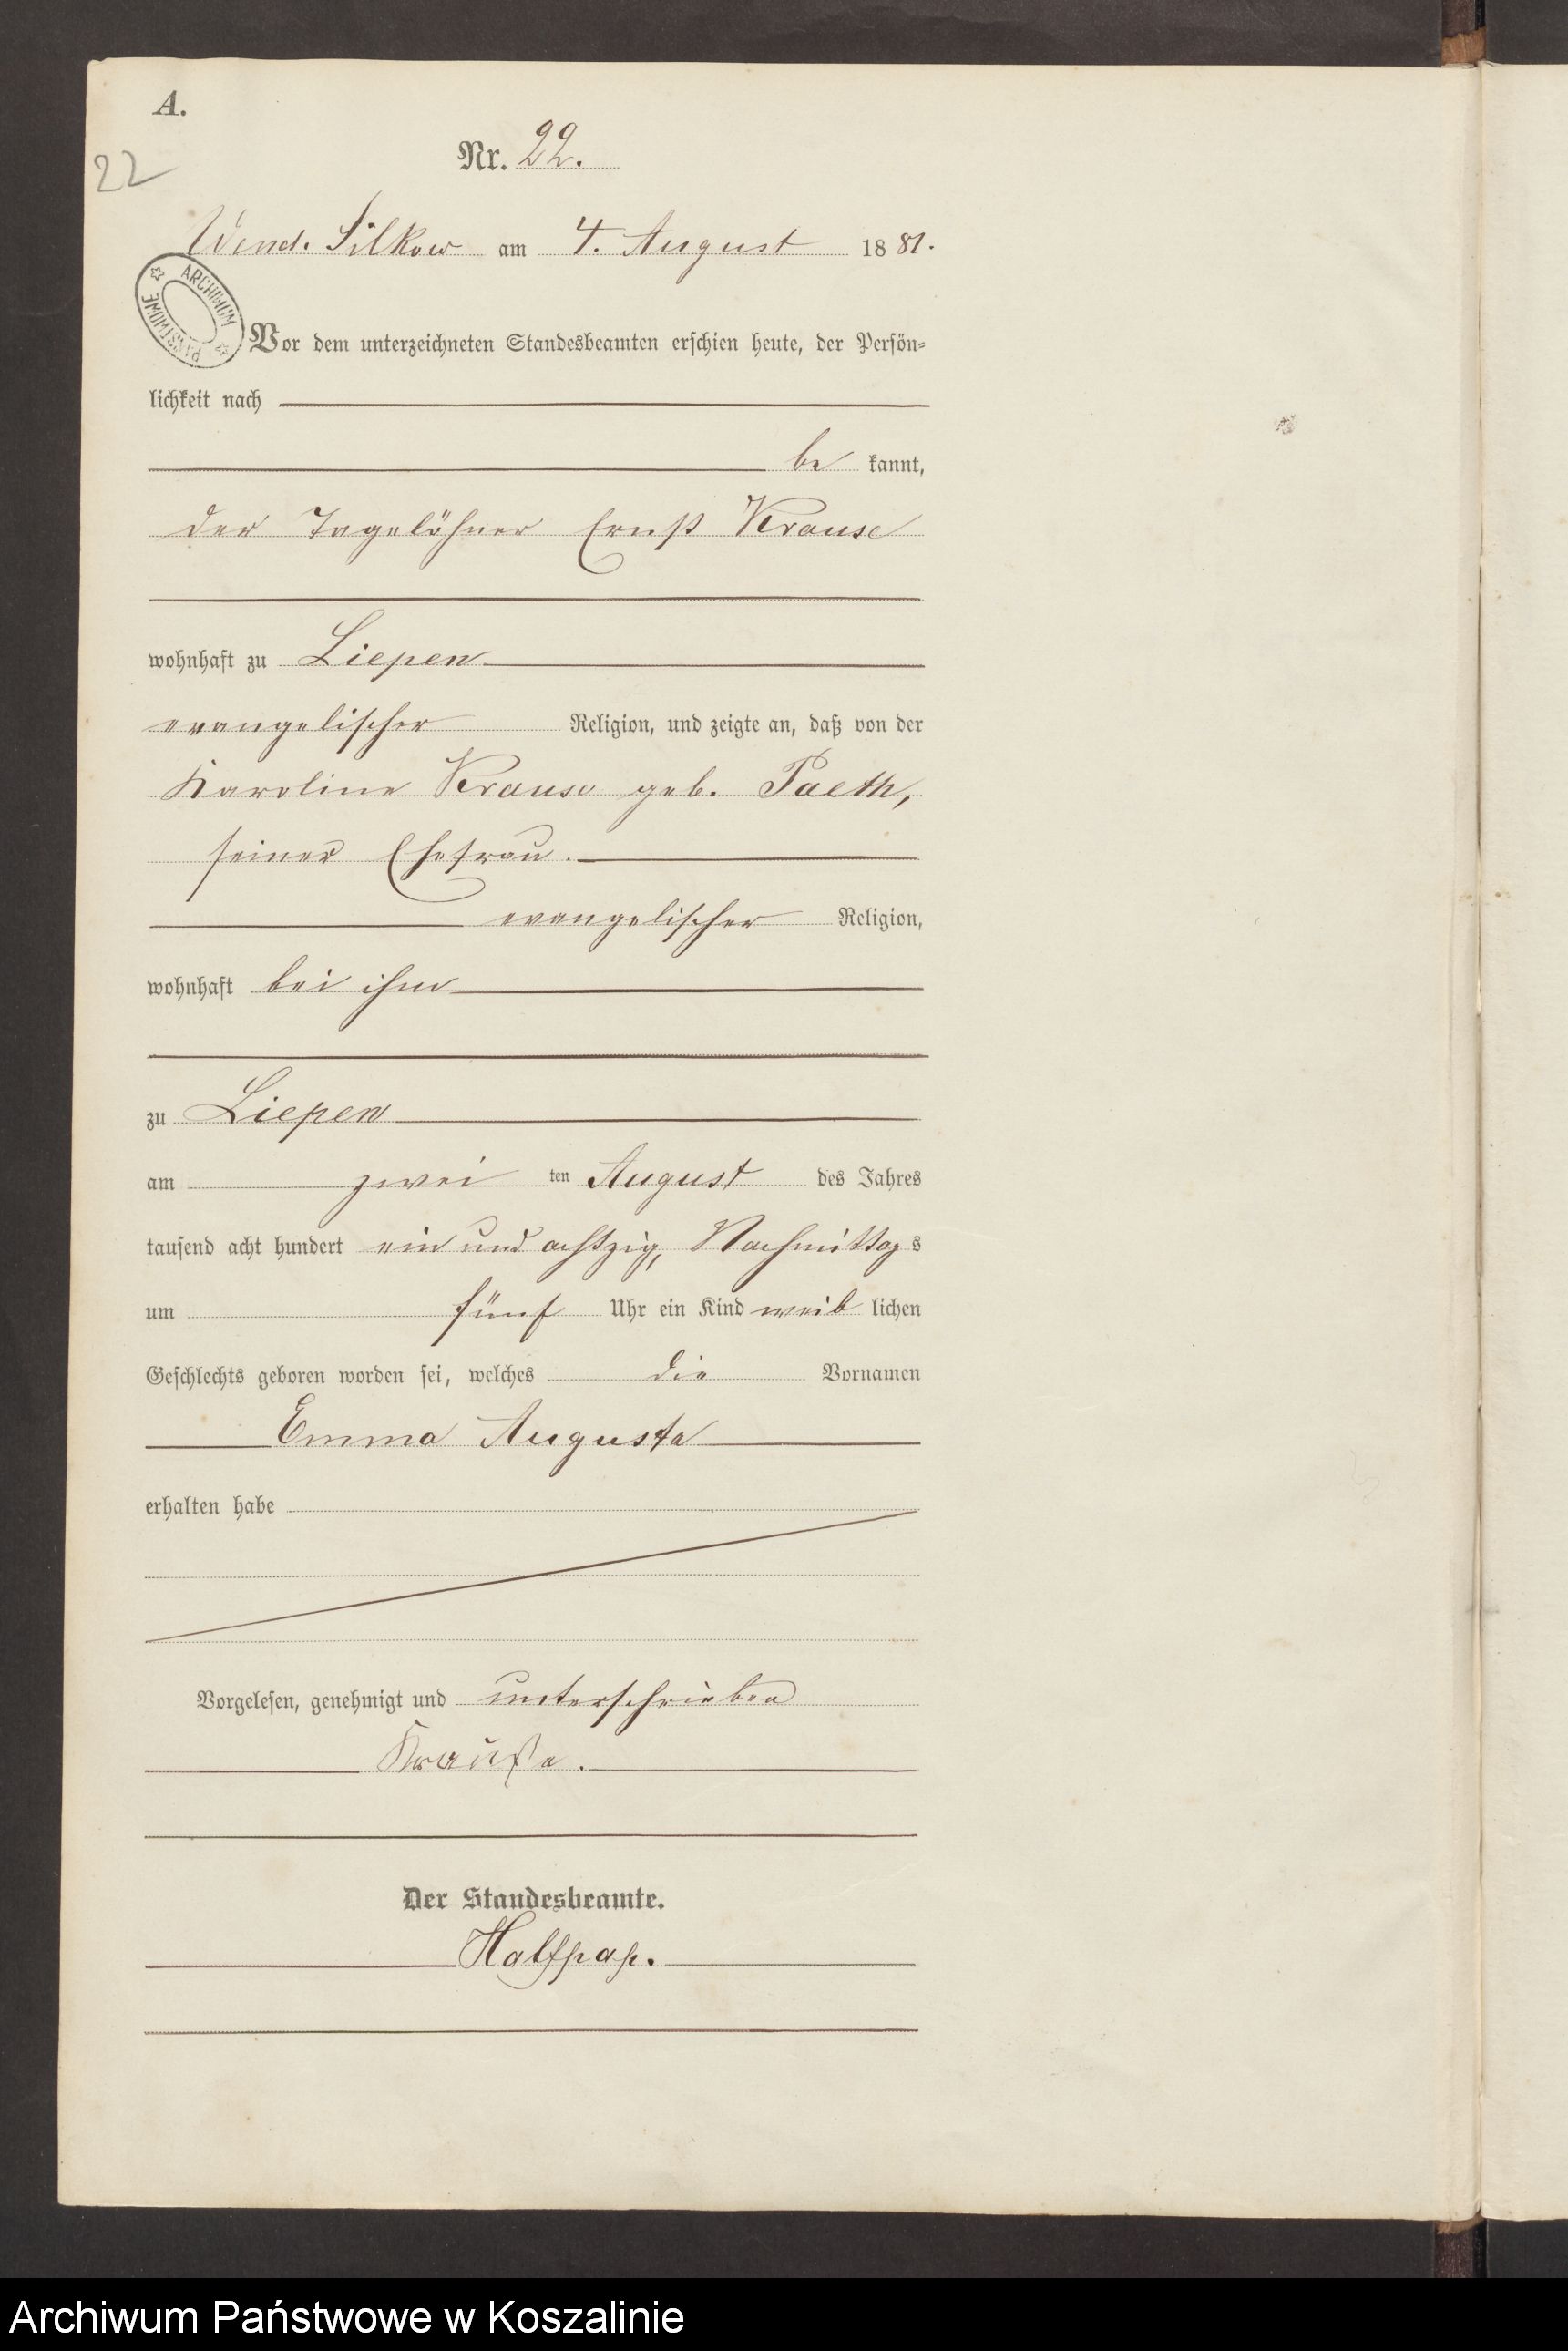 A.
22
Nr. 22.
Wend. Silkow am 4. August 1881.
ARCHIWUM PAŃSTWOWE
Vor dem unterzeichneten Standesbeamten erschien heute, der Persön-
lichkeit nach
be kannt,
der Tagelöhner Ernst Krause
wohnhaft zu Liepen
evangelischer Religion, und zeigte an, daß von der
Karoline Krause geb. Paeth,
seiner Ehefrau.
evangelischer Religion,
wohnhaft bei ihm
zu Liepen
am zwei ten August des Jahres
tausend acht hundert ein und achtzig, Nachmittags
um fünf Uhr ein Kind weib lichen
Geschlechts geboren worden sei, welches die Vornamen
Emma Augusta
erhalten habe
Vorgelesen, genehmigt und unterschrieben
Krauße.
Der Standesbeamte.
Halfpap.
Archiwum Państwowe w Koszalinie